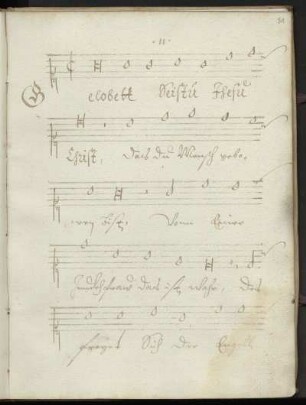 - 11 -
Gelobett Seistu Jhesu
Christ, das du Mensch gebo,
ren bist, Vonn Einer
Jungkfraw das ist wahr, Des
frewet Sich der Engell